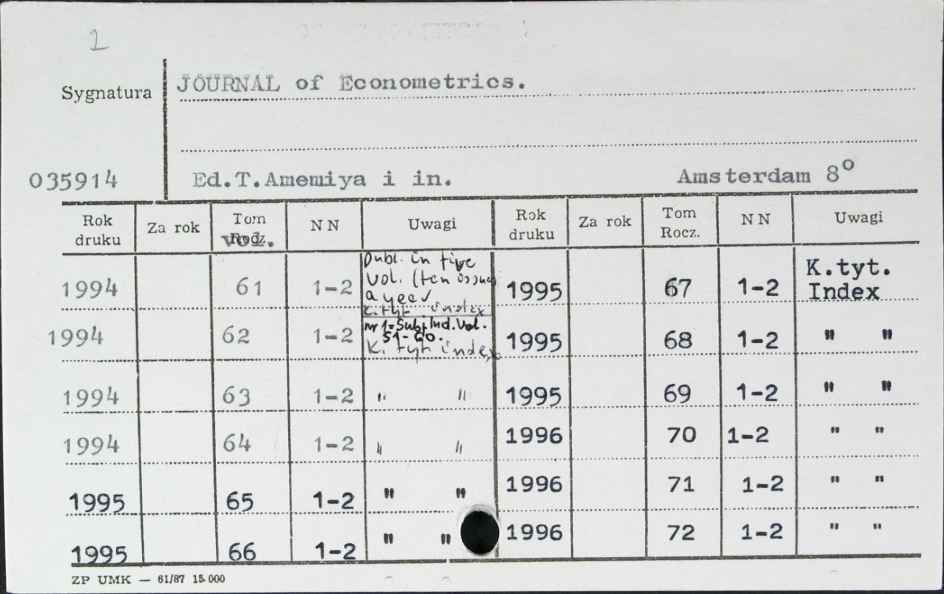 2
Sygnatura JOURNAL of Econometrics.
035914 Ed.T.Amemiya i in. Amsterdam 8°
Rok druku Za rok Tom Rocz. vol. N N Uwagi Rok druku Za rok Tom Rocz. N N Uwagi
1994 61 1-2 Publ. in five vol. (ten issues a year K. tyt index 1995 67 1-2 K.tyt. Index
1994 62 1-2 nr 1=Subj. Ind. Vol. 51-60. K. tyt index 1995 68 1-2 " "
1994 63 1-2 " " 1995 69 1-2 " "
1994 64 1-2 " " 1996 70 1-2 " "
1995 65 1-2 " " 1996 71 1-2 " "
1995 66 1-2 " " 1996 72 1-2 " "
ZP UMK — 61/87 15 000